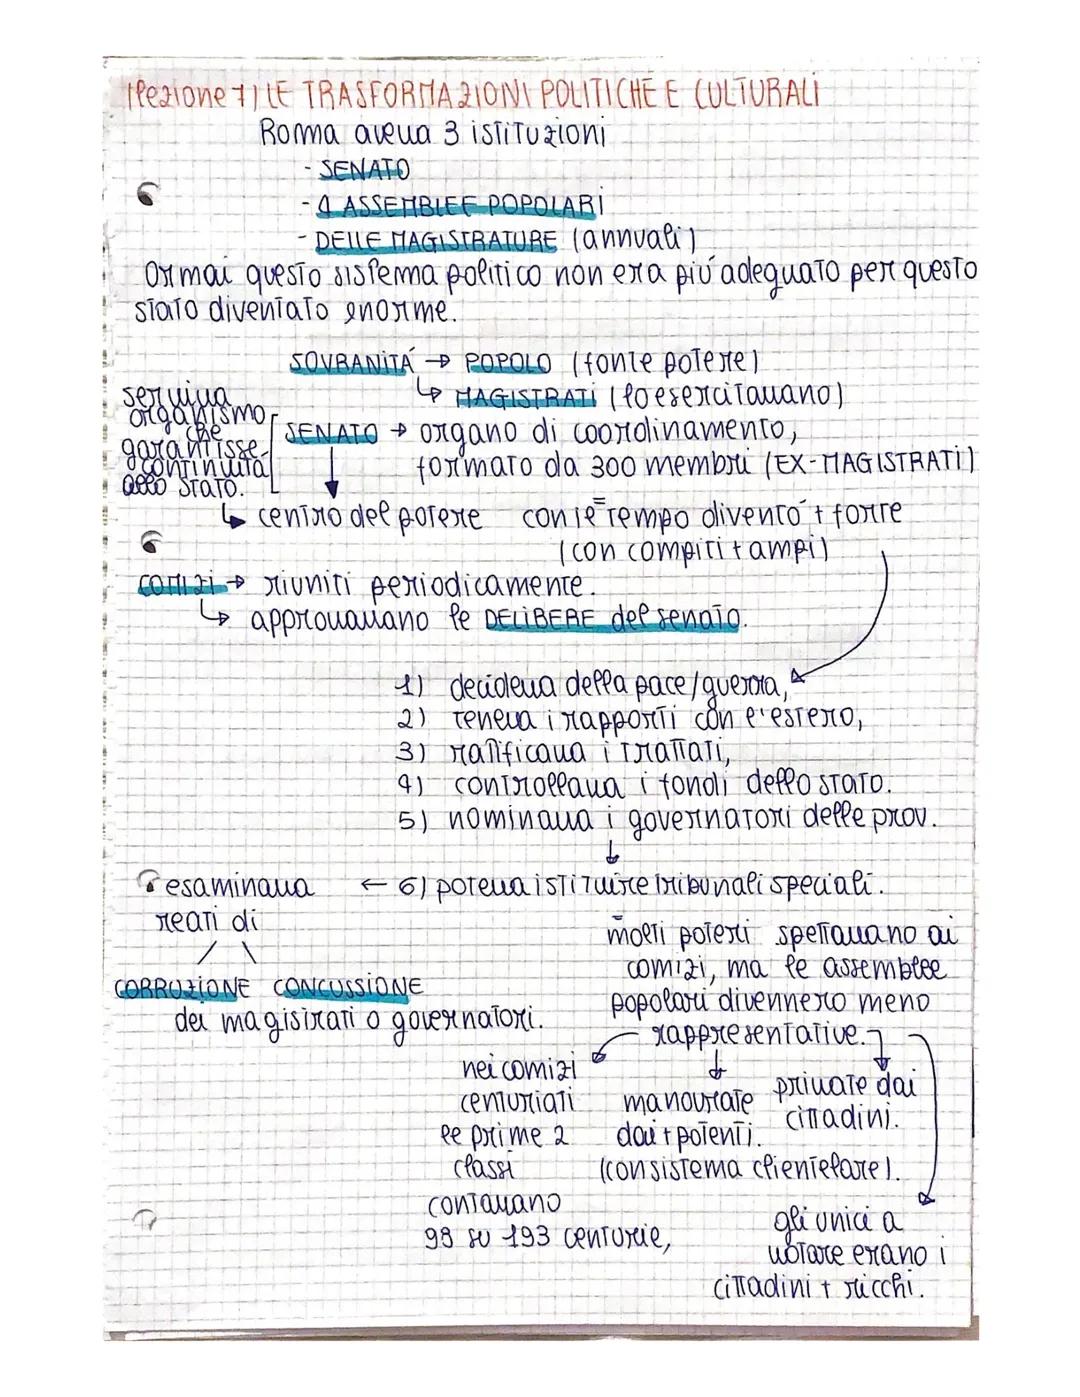 (lezione 7) LE TRASFORMAZIONI POLITICHE E CULTURALI
Roma aveva 3 istituzioni
- SENATO
- 4 ASSEMBLEE POPOLARI
- DELLE MAGISTRATURE (annuali)
Ormai questo sistema politico non era più adeguato per questo
stato diventato enorme.
SOVRANITÀ → POPOLO (fonte potere)
↳ MAGISTRATI (lo esercitavano)
serviva
organismo
che
garantisse
continuità
allo stato.
SENATO → organo di coordinamento,
formato da 300 membri (EX-MAGISTRATI)
↳ centro del potere
con il tempo diventò + forte
(con compiti + ampi)
COMIZI → riuniti periodicamente.
↳ approvavano le DELIBERE del senato.
1) decideva della pace/guerra,
2) teneva i rapporti con l'estero,
3) ratificava i trattati,
4) controllava i fondi dello stato.
5) nominava i governatori delle prov.
← 6) poteva istituire tribunali speciali.
esaminava
reati di
CORRUZIONE CONCUSSIONE
dei magistrati o governatori.
molti poteri spettavano ai
comizi, ma le assemblee
popolari divennero meno
rappresentative.
nei comizi
centuriati
le prime 2
classi
contavano
98 su 193 centurie,
manovrate
dai + potenti.
(con sistema clientelare).
privare dai
cittadini.
gli unici a
votare erano i
cittadini + ricchi.